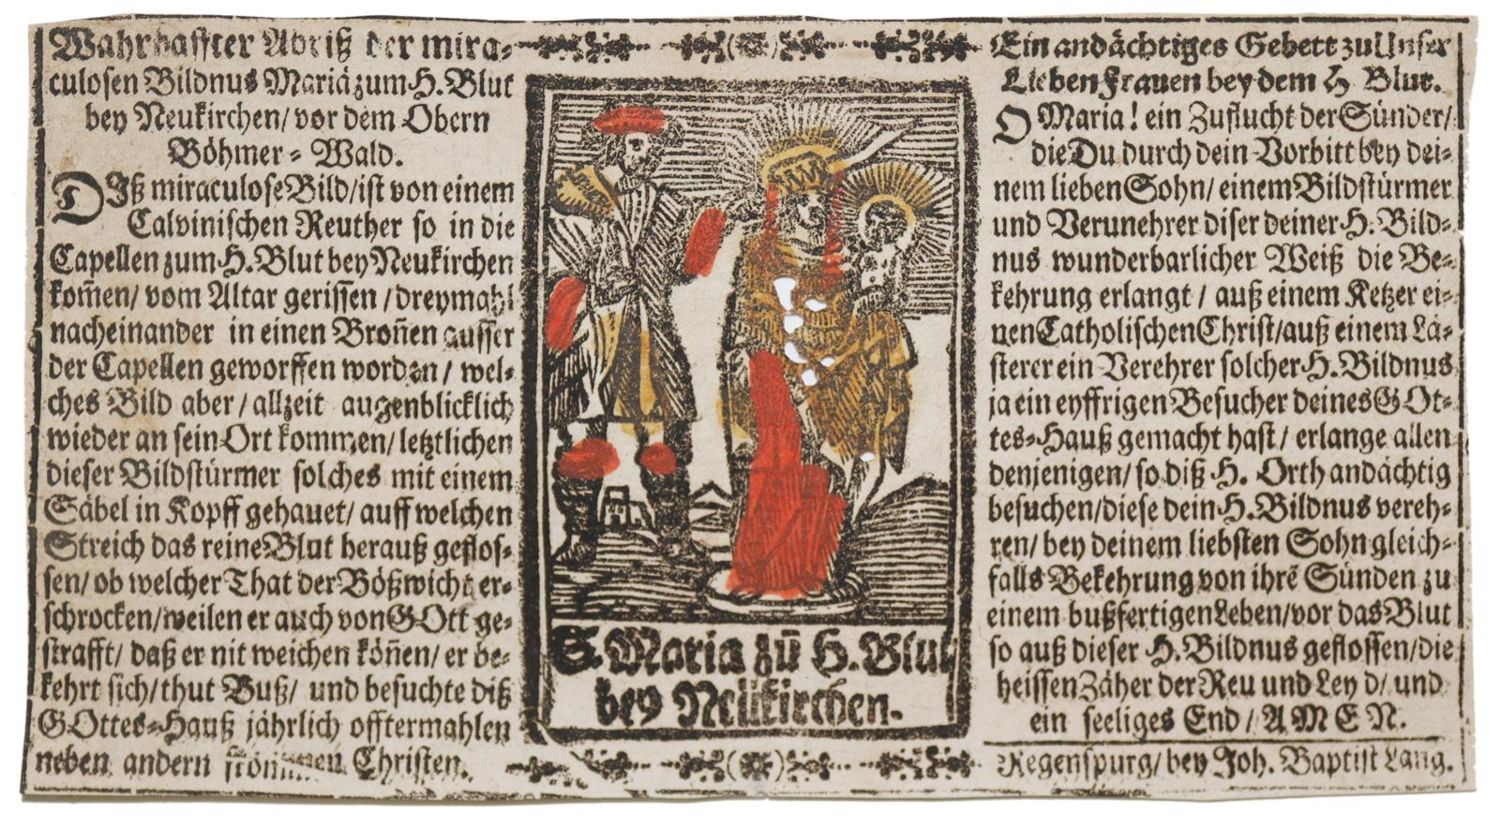 Wahrhaffter Abriß der mira-
culosen Bildnus Mariä zum H. Blut
bey Neukirchen/ vor dem Obern
Böhmer-Wald.
DIß miraculose Bild/ ist von einem
Calvinischen Reuther so in die
Capellen zum H. Blut bey Neukirchen
kom̃en/ vom Altar gerissen/ dreymahl
nacheinander in einen Broñen ausser
der Capellen geworffen worden/ wel-
ches Bild aber/ allzeit augenblicklich
wieder an sein Ort kommen/ letztlichen
dieser Bildstürmer solches mit einem
Säbel in Kopff gehauet/ auff welchen
Streich das reine Blut herauß geflos-
sen/ ob welcher That der Bößwicht er-
schrocken/ weilen er auch von GOtt ge-
strafft/ daß er nit weichen köñen/ er be-
kehrt sich/ thut Buß/ und besuchte diß
GOttes-Hauß jährlich offtermahlen
neben andern frommen Christen.
S. Maria zū H. Blut
bey Neükirchen.
Ein andächtiges Gebett zu Unser
Lieben Frauen bey dem H Blut.
O Maria! ein Zuflucht der Sünder/
die Du durch dein Vorbitt bey dei-
nem lieben Sohn/ einem Bildstürmer
und Verunehrer diser deiner H. Bild-
nus wunderbarlicher Weiß die Be-
kehrung erlangt/ auß einem Ketzer ei-
nen Catholischen Christ/ auß einem Lä-
sterer ein Verehrer solcher H. Bildnus
ja ein eyffrigen Besucher deines GOt-
tes-Hauß gemacht hast/ erlange allen
denjenigen/ so diß H. Orth andächtig
besuchen/ diese dein H. Bildnus vereh-
ren/ bey deinem liebsten Sohn gleich-
falls Bekehrung von ihrē Sünden zu
einem bußfertigen Leben/ vor das Blut
so auß dieser H. Bildnus geflossen/ die
heissen Zäher der Reu und Leyd/ und
ein seeliges End/ AMEN.
Regenspurg/ bey Joh. Baptist Lang.